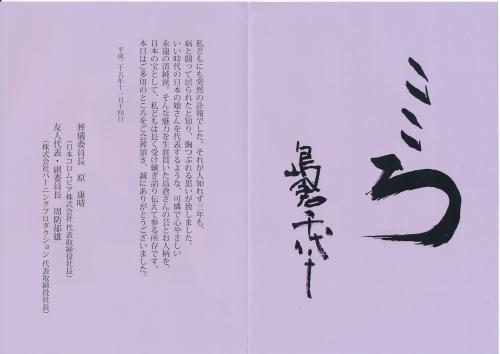 こころ
島倉千代子
私どもにも突然の訃報でした。それが人知れず三年も、
病と闘って居られたと知り、胸つぶれる思いが致しました。
いい時代の日本の娘さんを代表するような、可憐で心やさしい
永遠の清純派。そんな魅力を生涯貫いた島倉さんの芸とお人柄を、
日本の宝として、私どもは長く受け継ぎ語り伝えて参る所存です。
本日はご多用のところをご会葬頂き、誠にありがとうございました。
平成二十五年十一月十四日
葬儀委員長 原 康晴
(日本コロムビア株式会社 代表取締役社長)
友人代表・副委員長 周防郁雄
(株式会社バーニングプロダクション 代表取締役社長)